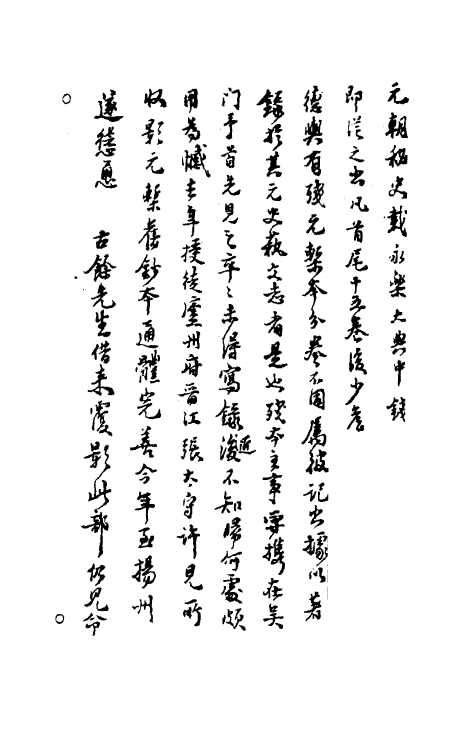 元朝秘史載永樂大典中錢
即從之出凡首尾十五卷後少詹
德輿有殘元槧本分卷不同屬彼記出據以著
錄於其元史藝文志者是也殘本主事嘗攜在吳
門予首先見之率〻未得寫錄後近不知歸何處頗
用為憾去年授徒廬州府晉江張太守許見所
收影元槧舊鈔本通體完善今年至揚州
遂慫恿 古餘先生借來覆影此部仍見命